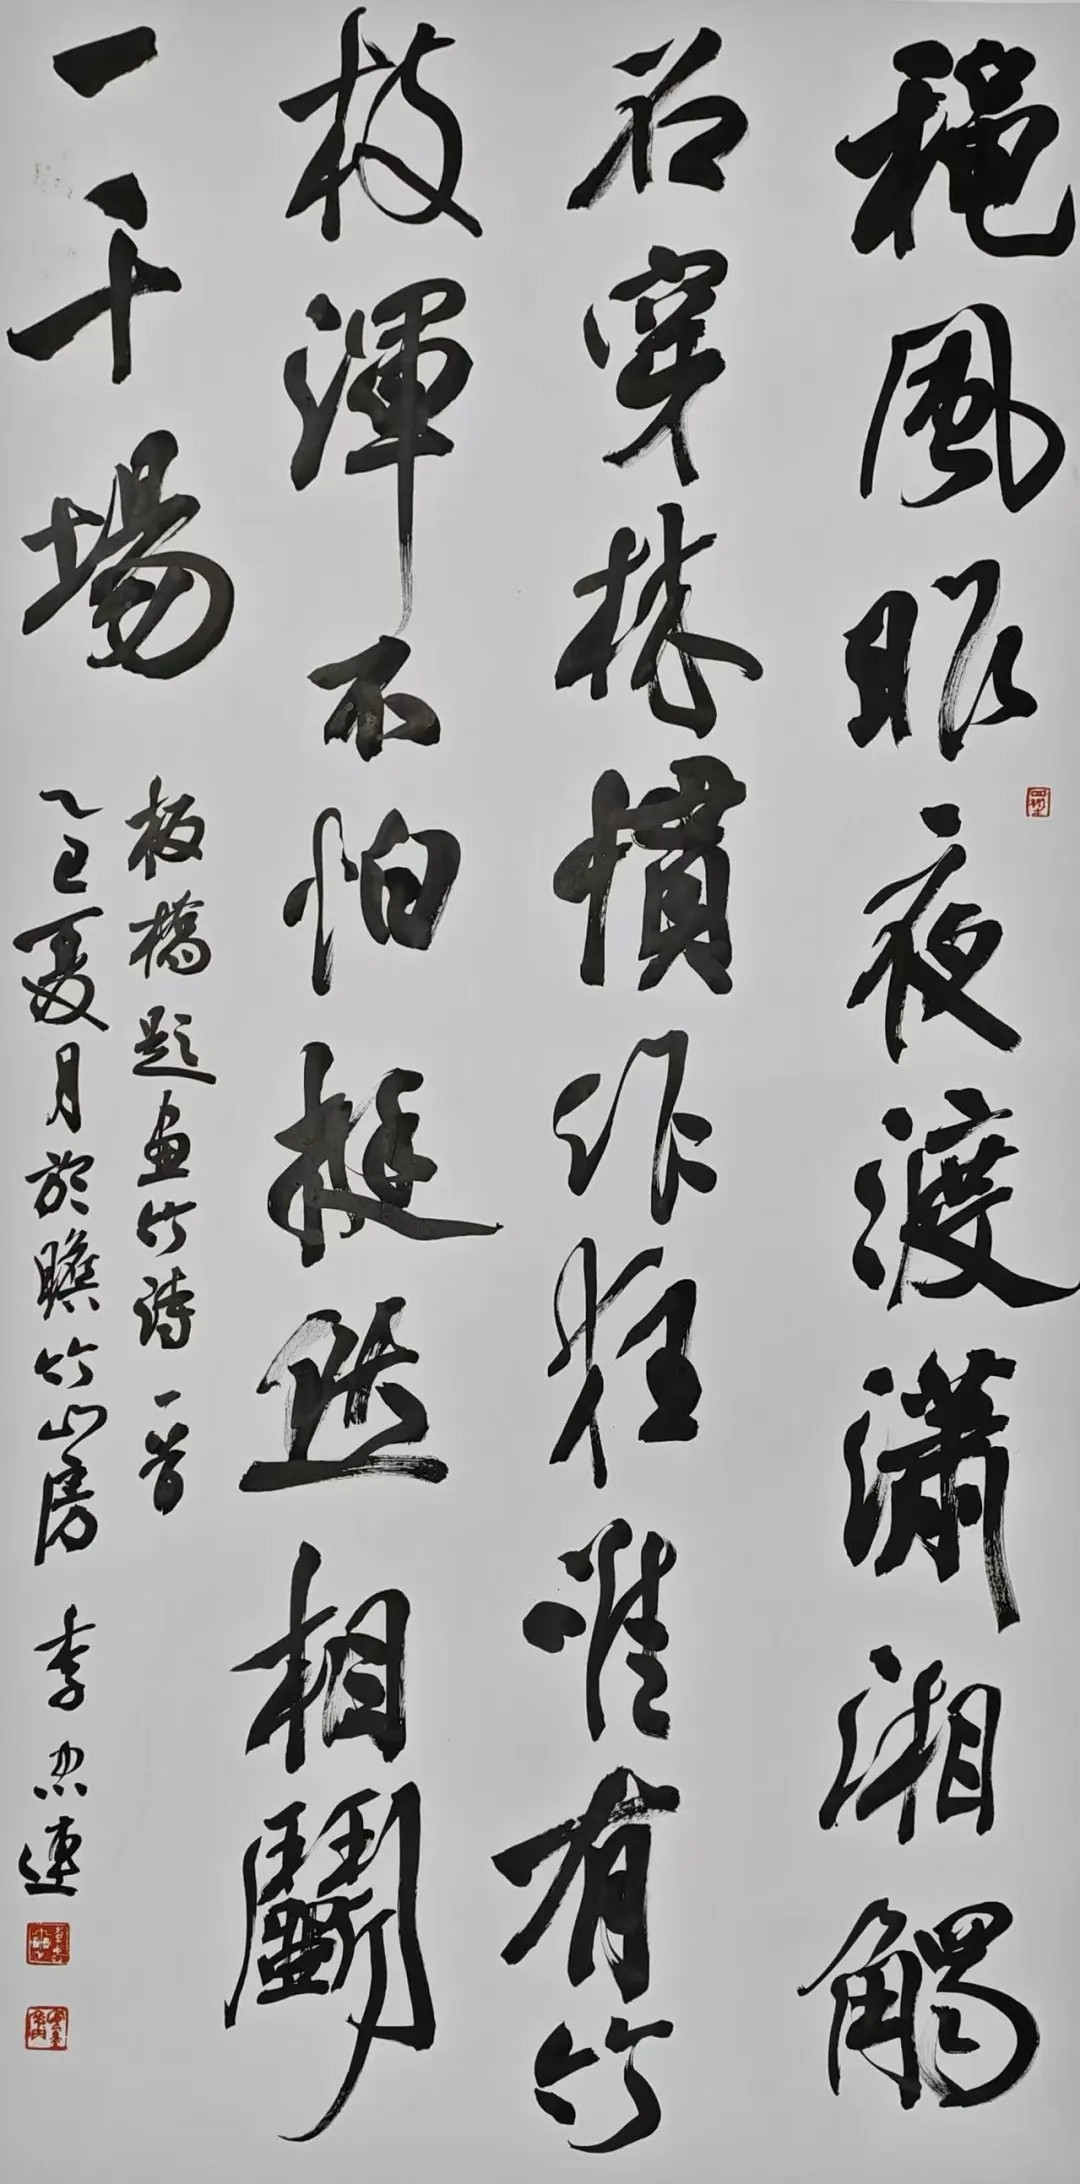 穐風昨夜渡瀟湘觸
石穿林慣作狂惟有竹
枝渾不怕挺然相鬬
一千場
板橋題畫竹詩一首
乙巳夏月於竹山房 李忠連